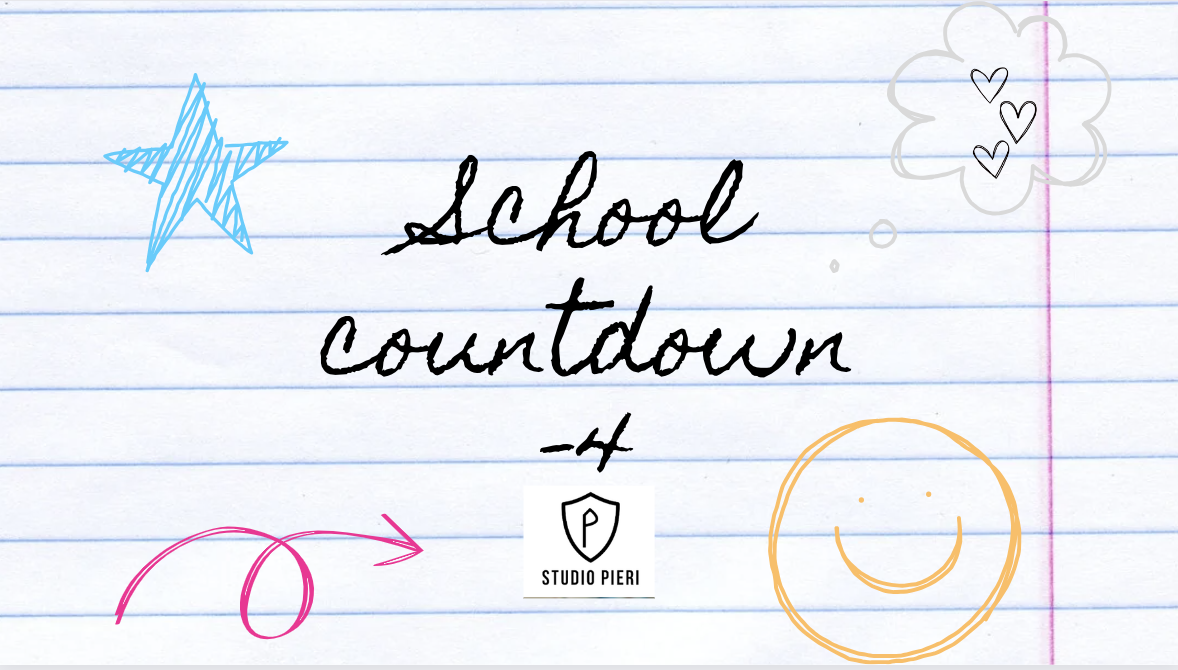 School
countdown
-4
STUDIO PIERI